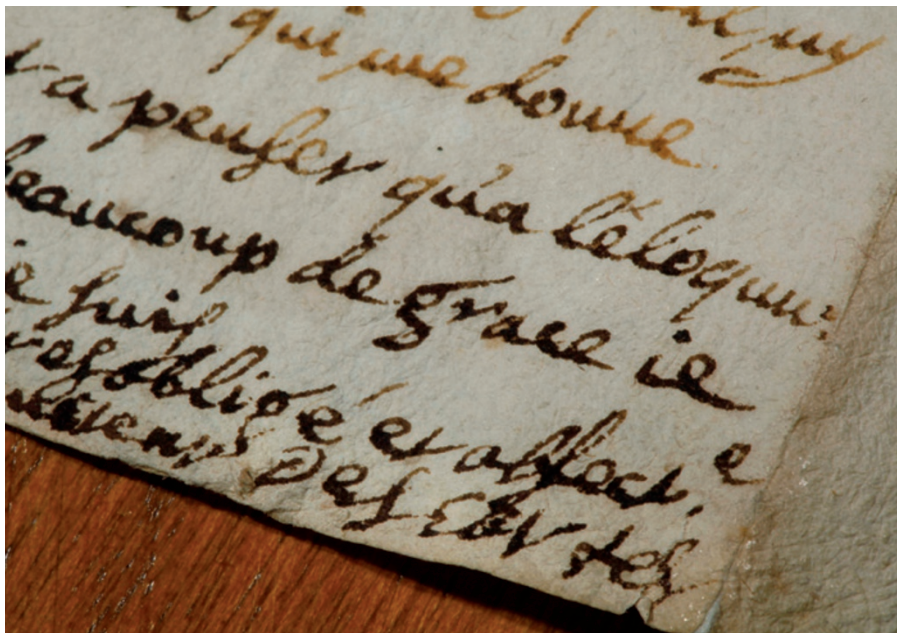 qui me donne
a penser qu'a l'éloquen:
beaucoup de grace ie
ie suis
obligé et affect.é
Descartes